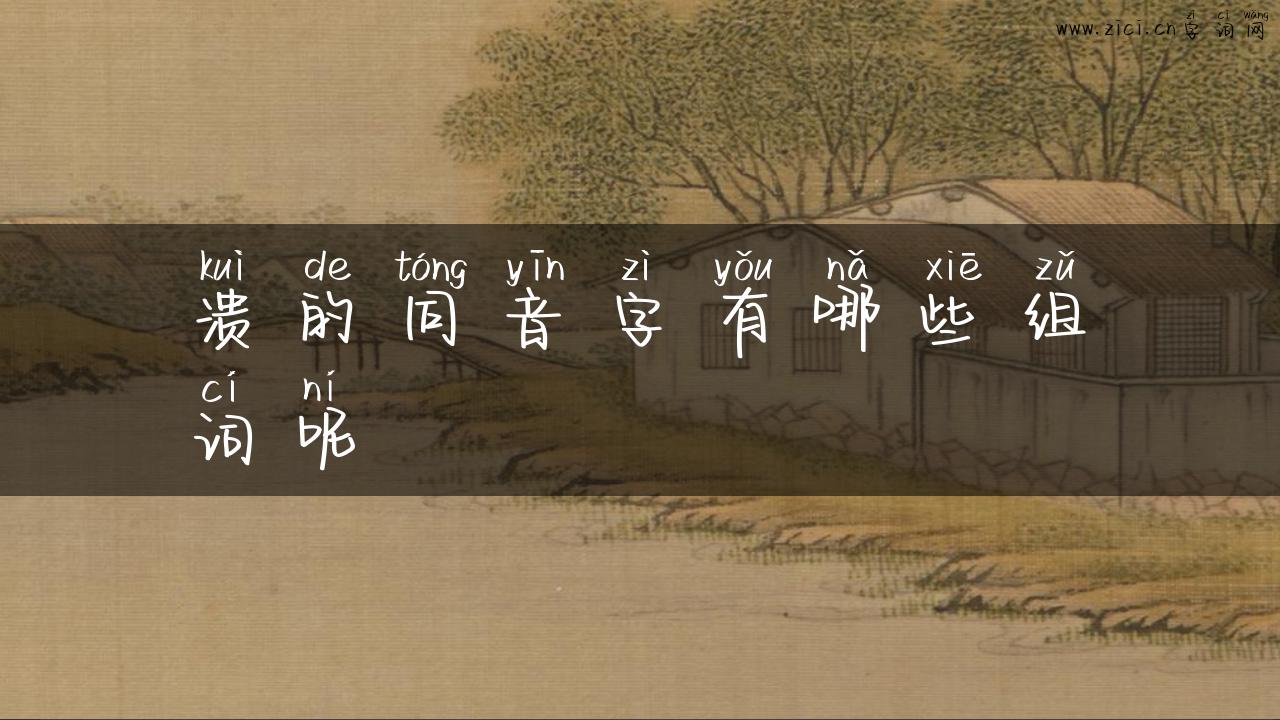 zì cí wǎng
www.zici.cn字词网
kuì de tóng yīn zì yǒu nǎ xiē zǔ
溃的同音字有哪些组
cí ní
词呢